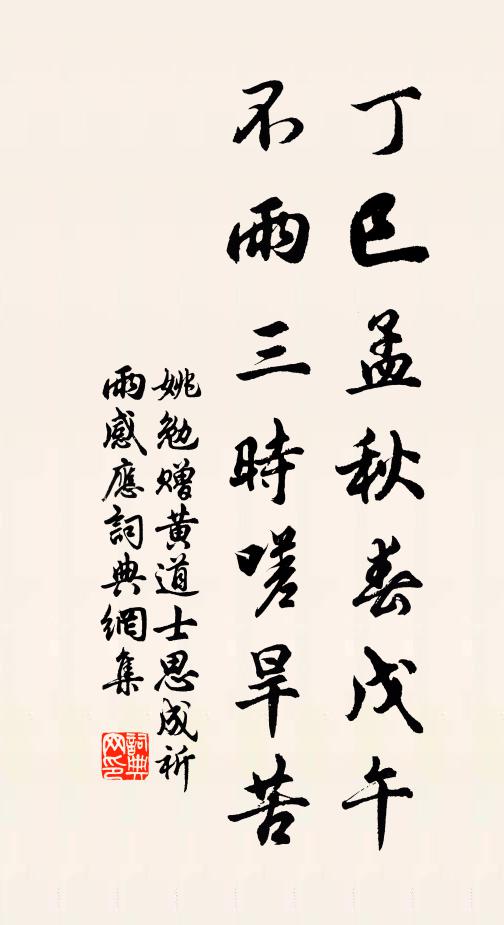 丁巳孟秋春戊午
不雨三時嗟旱苦
姚勉贈黃道士思成祈
雨感應詞典網集
詞典網印